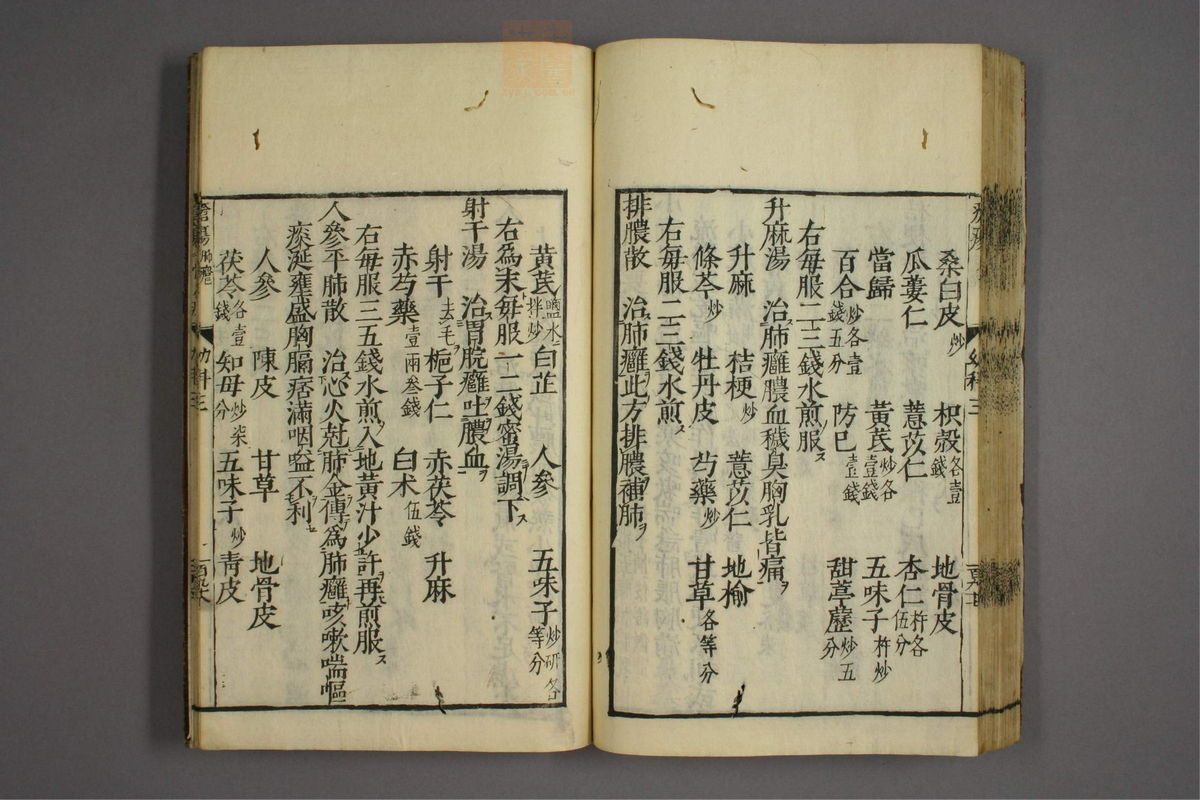 桑白皮炒 枳殼各壹錢 地骨皮
瓜蔞仁 薏苡仁 杏仁杵各伍分
當歸 黃芪炒各壹錢 五味子杵炒
百合炒各壹錢五分 防已壹錢 甜葶藶炒五分
右每服二三錢水煎服ス
升麻湯 治肺癰膿血穢臭胸乳皆痛
升麻 桔梗炒 薏苡仁 地榆
條芩炒 牡丹皮 芍藥炒 甘草各等分
右每服二三錢水煎ス
排膿散 治肺癰此方排膿補肺
黃芪鹽水拌炒 白芷 人參 五味子炒研各等分
右為末每服一二錢蜜湯調下ス
射干湯 治胃脘癰吐膿血
射干去毛 梔子仁 赤茯苓 升麻
赤芍藥壹兩叁錢 白朮伍錢
右每服三五錢水煎入地黃汁少許再煎服ス
人參平肺散 治心火尅肺金傳為肺癰咳嗽喘嘔
痰涎壅盛胸膈痞滿咽嗌不利
人參 陳皮 甘草 地骨皮
茯苓各壹錢 知母炒柒分 五味子炒 青皮
瘡瘍 幼科三